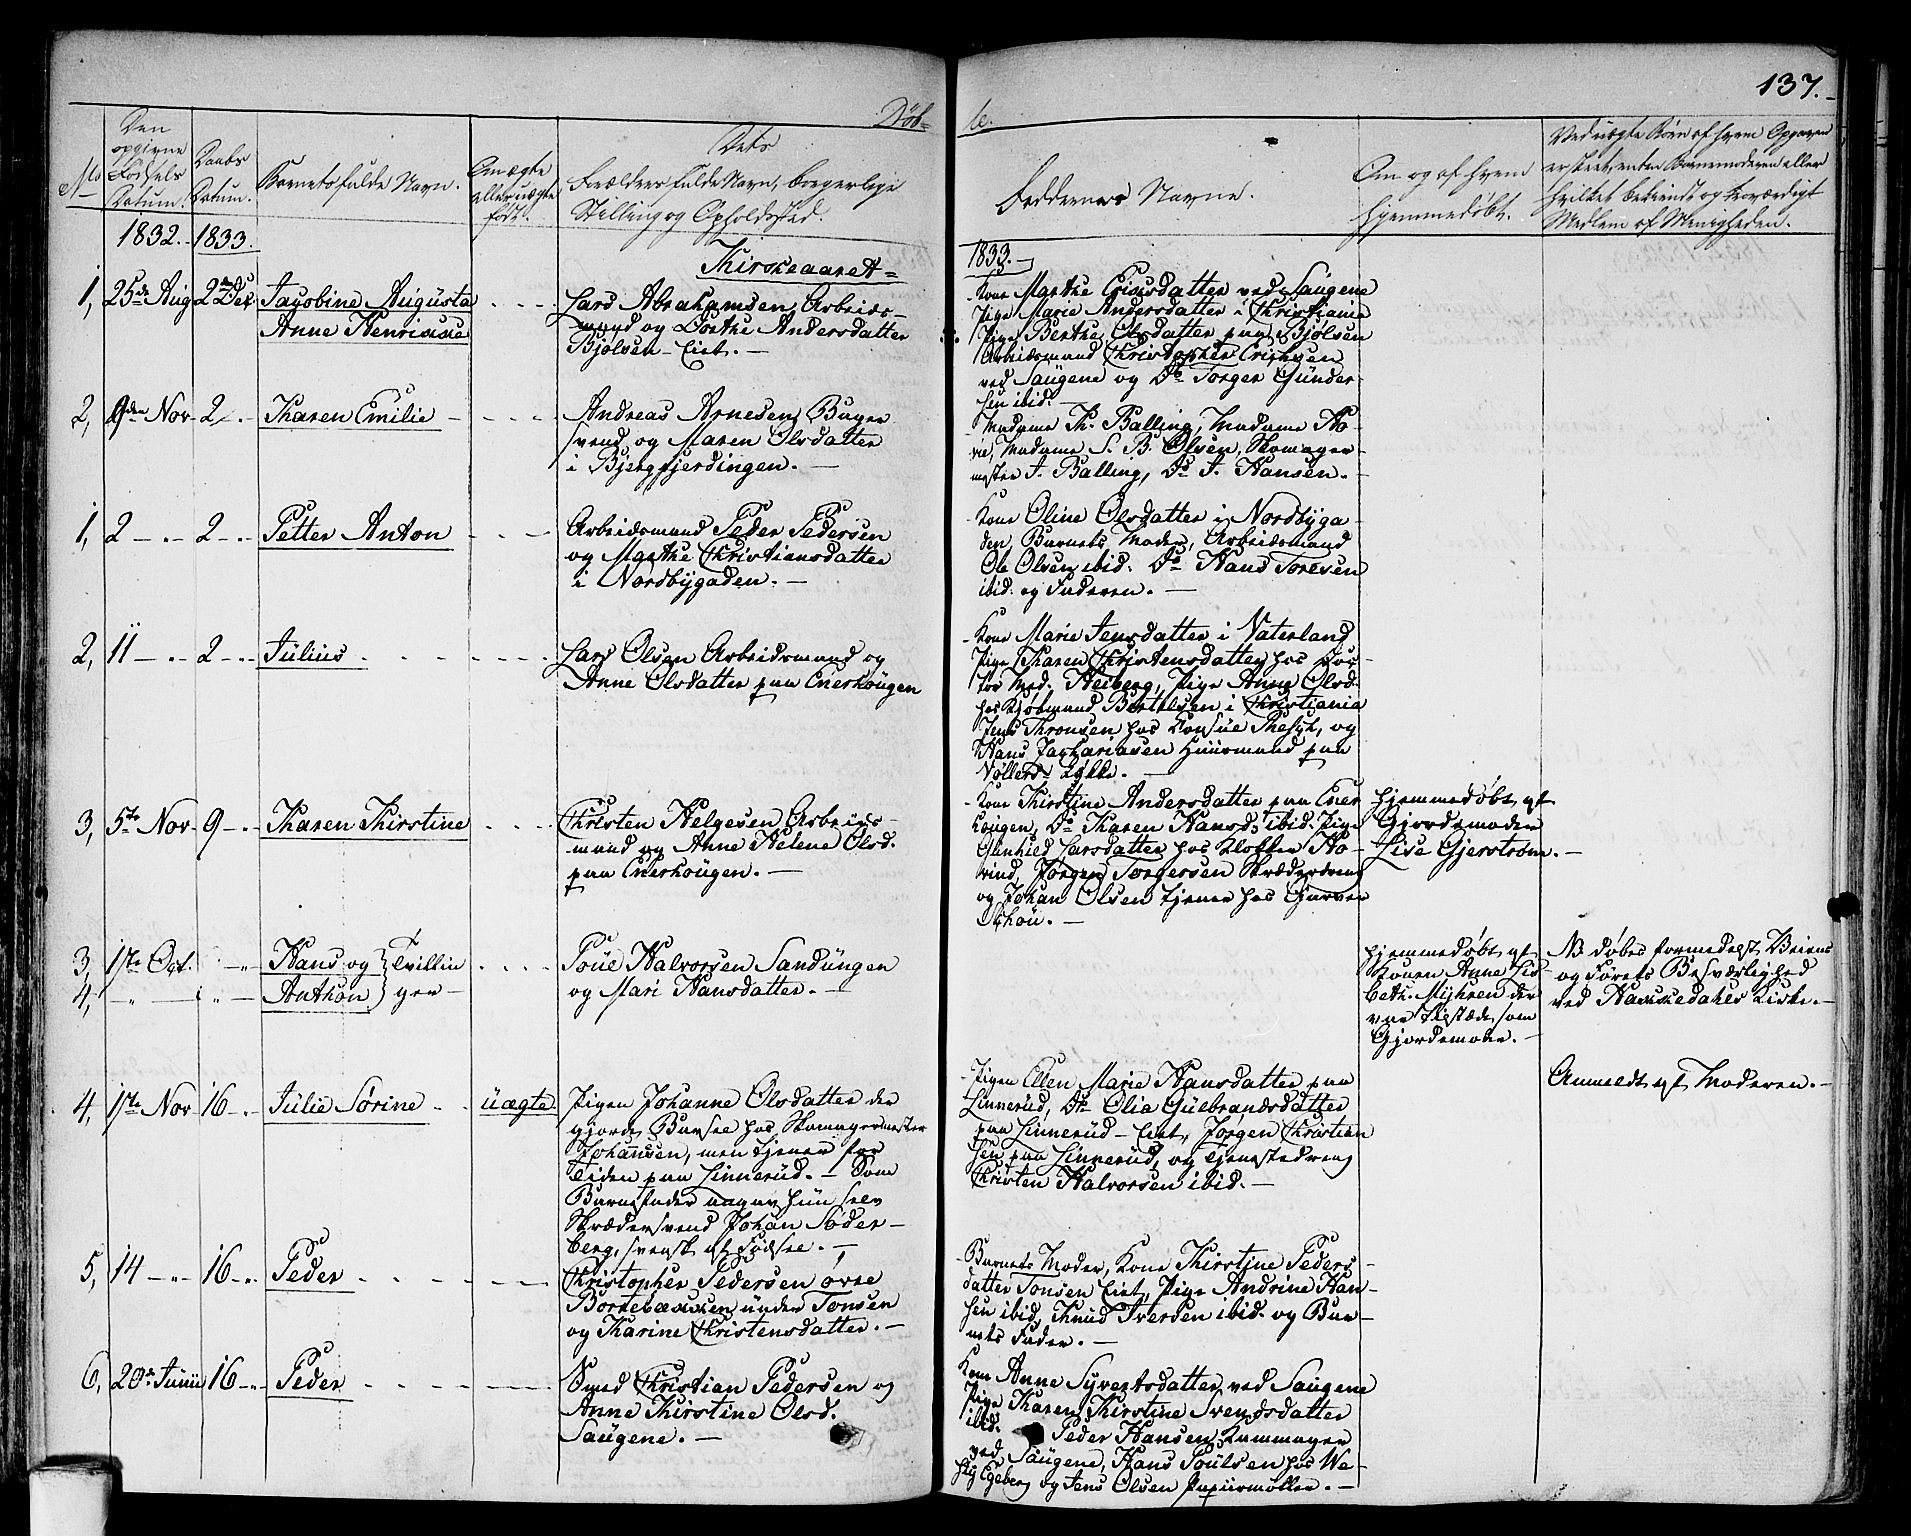 137.
Døb-
te.
No
Den
opgivne
Fødsels
Datum.
Daabs
Datum.
Barnets fulde Navn.
Om ægte
eller uægte
født.
Dets
Forældres fulde Navn, borgerlige
Stilling og Opholdssted.
Faddernes Navne.
Om og af hvem
hjemmedøbt.
Ved uægte Børn af hvem Opgaven
er skeet, enten Barnemoderen eller
hvilket bekiendt og troværdigt
Medlem af Menigheden.
1832. 1833.
Kirkeaaret
1833.
1, 25de Aug 2 Dec Jacobine Augusta
Anne Henrikke
Lars Abrahamsen Arbeids-
mand og Dorthe Andersdatter
Bjølsen-Eiet. —
Kone Marthe Ericksdatter ved Saugene
Pige Marie Andersdatter i Christiania
Pige Berthe Olsdatter paa Bjølsen
Arbeidsmand Christopher Erichsen
ved Saugene og Do Torger Gunder-
sen ibid. —
2, 9den Nov 2 Karen Emilie
Andreas Arnesen Bager
svend og Maren Olsdatter
i Bjergfjerdingen. —
Madame Th. Balling, Madame Ho-
vie, Madame S. B. Olsen, Skomager-
mester J. Balling, Do J. Hansen. —
1, 2 2 Petter Anton
Arbeidsmand Peder Pedersen
og Marthe Christiansdatter
i Nordbygaden. —
Kone Oline Olsdatter i Nordbyga-
den Barnets Moder, Arbeidsmand
Ole Olsen ibid. Do Hans Toresen
ibid. og Faderen. —
2, 11 2 Julius
Lars Olsen Arbeidsmand og
Anne Olsdatter paa Enerhougen
Kone Marie Jensdatter i Vaterland
Pige Karen Christensdatter hos
Heiberg, Pige Anne Olsd.
hos Kjøbmand Bertelsen i Christiania
Jens Thronsen hos Consul Thesen, og
Hans Zachariasen Huusmand paa
Møllers Løkke. —
3, 5te Nov 9 Karen Kirstine
Christen Helgesen Arbeids-
mand og Anne Helene Olsd.
paa Enerhougen. —
Kone Kirstine Andersdatter paa Ener
hougen, Do Karen Hansd. ibid. Pige
Gunhild Larsdatter hos Klokker Ho-
vind, Jørgen Torgersen Skrædderdreng
og Johan Olsen tjener hos Garver
Schou. —
Hjemmedøbt af
Gjordemoder
Lise Gjerstrøm. —
3, 1te Oct. Hans og } Tvillin
4, Anthon } ger —
Poul Halvorsen Sandungen
og Mari Hansdatter. —
Hjemmedøbt af
Konen Anne Lis
beth. Myhren der
var tilstæde som
Gjordemoder. —
NB døbes formedelst Veiens
og Førets Besværlighed
ved Hakkedahls Kirke. —
4, 1te Nov 16 Julie Sørine uægte.
Pigen Johanne Olsdatter der
gjorde Barsel hos Skomagermester
Johansen, men tjener for
Tiden paa Linnerud. — Som
Barnefader angav hun selv
Skrædersvend Johan Søder-
berg, svensk af Fødsel. —
Pigen Ellen Marie Hansdatter paa
Linnerud, Do Olia Gulbrandsdatter
paa Linnerud-Eiet, Jørgen Christian
sen paa Linnerud, og Tjenestedreng
Christen Halvorsen ibid. —
Anmeldt af Moderen. —
5, 14 16 Peder
Christopher Pedersen øvre
Borrebækken under Tonsen
og Karine Christensdatter. —
Barnets Moder, Kone Kirstine Peders-
datter Tonsen Eiet, Pige Andrine Han-
sen ibid, Knud Iversen ibid. og Bar-
nets Fader. —
6, 20de Junii 16 Peder
Smed Christian Pedersen og
Anne Kirstine Olsd.
Saugene. —
Kone Anne Syvertsdatter ved Saugene
Pige Karen Kirstine Svendsdatter
ibid. Peder Hansen Kammager
ved Saugene, Hans Poulsen hos We-
sty Egeberg og Jens Olsen Papiirmøllen. —